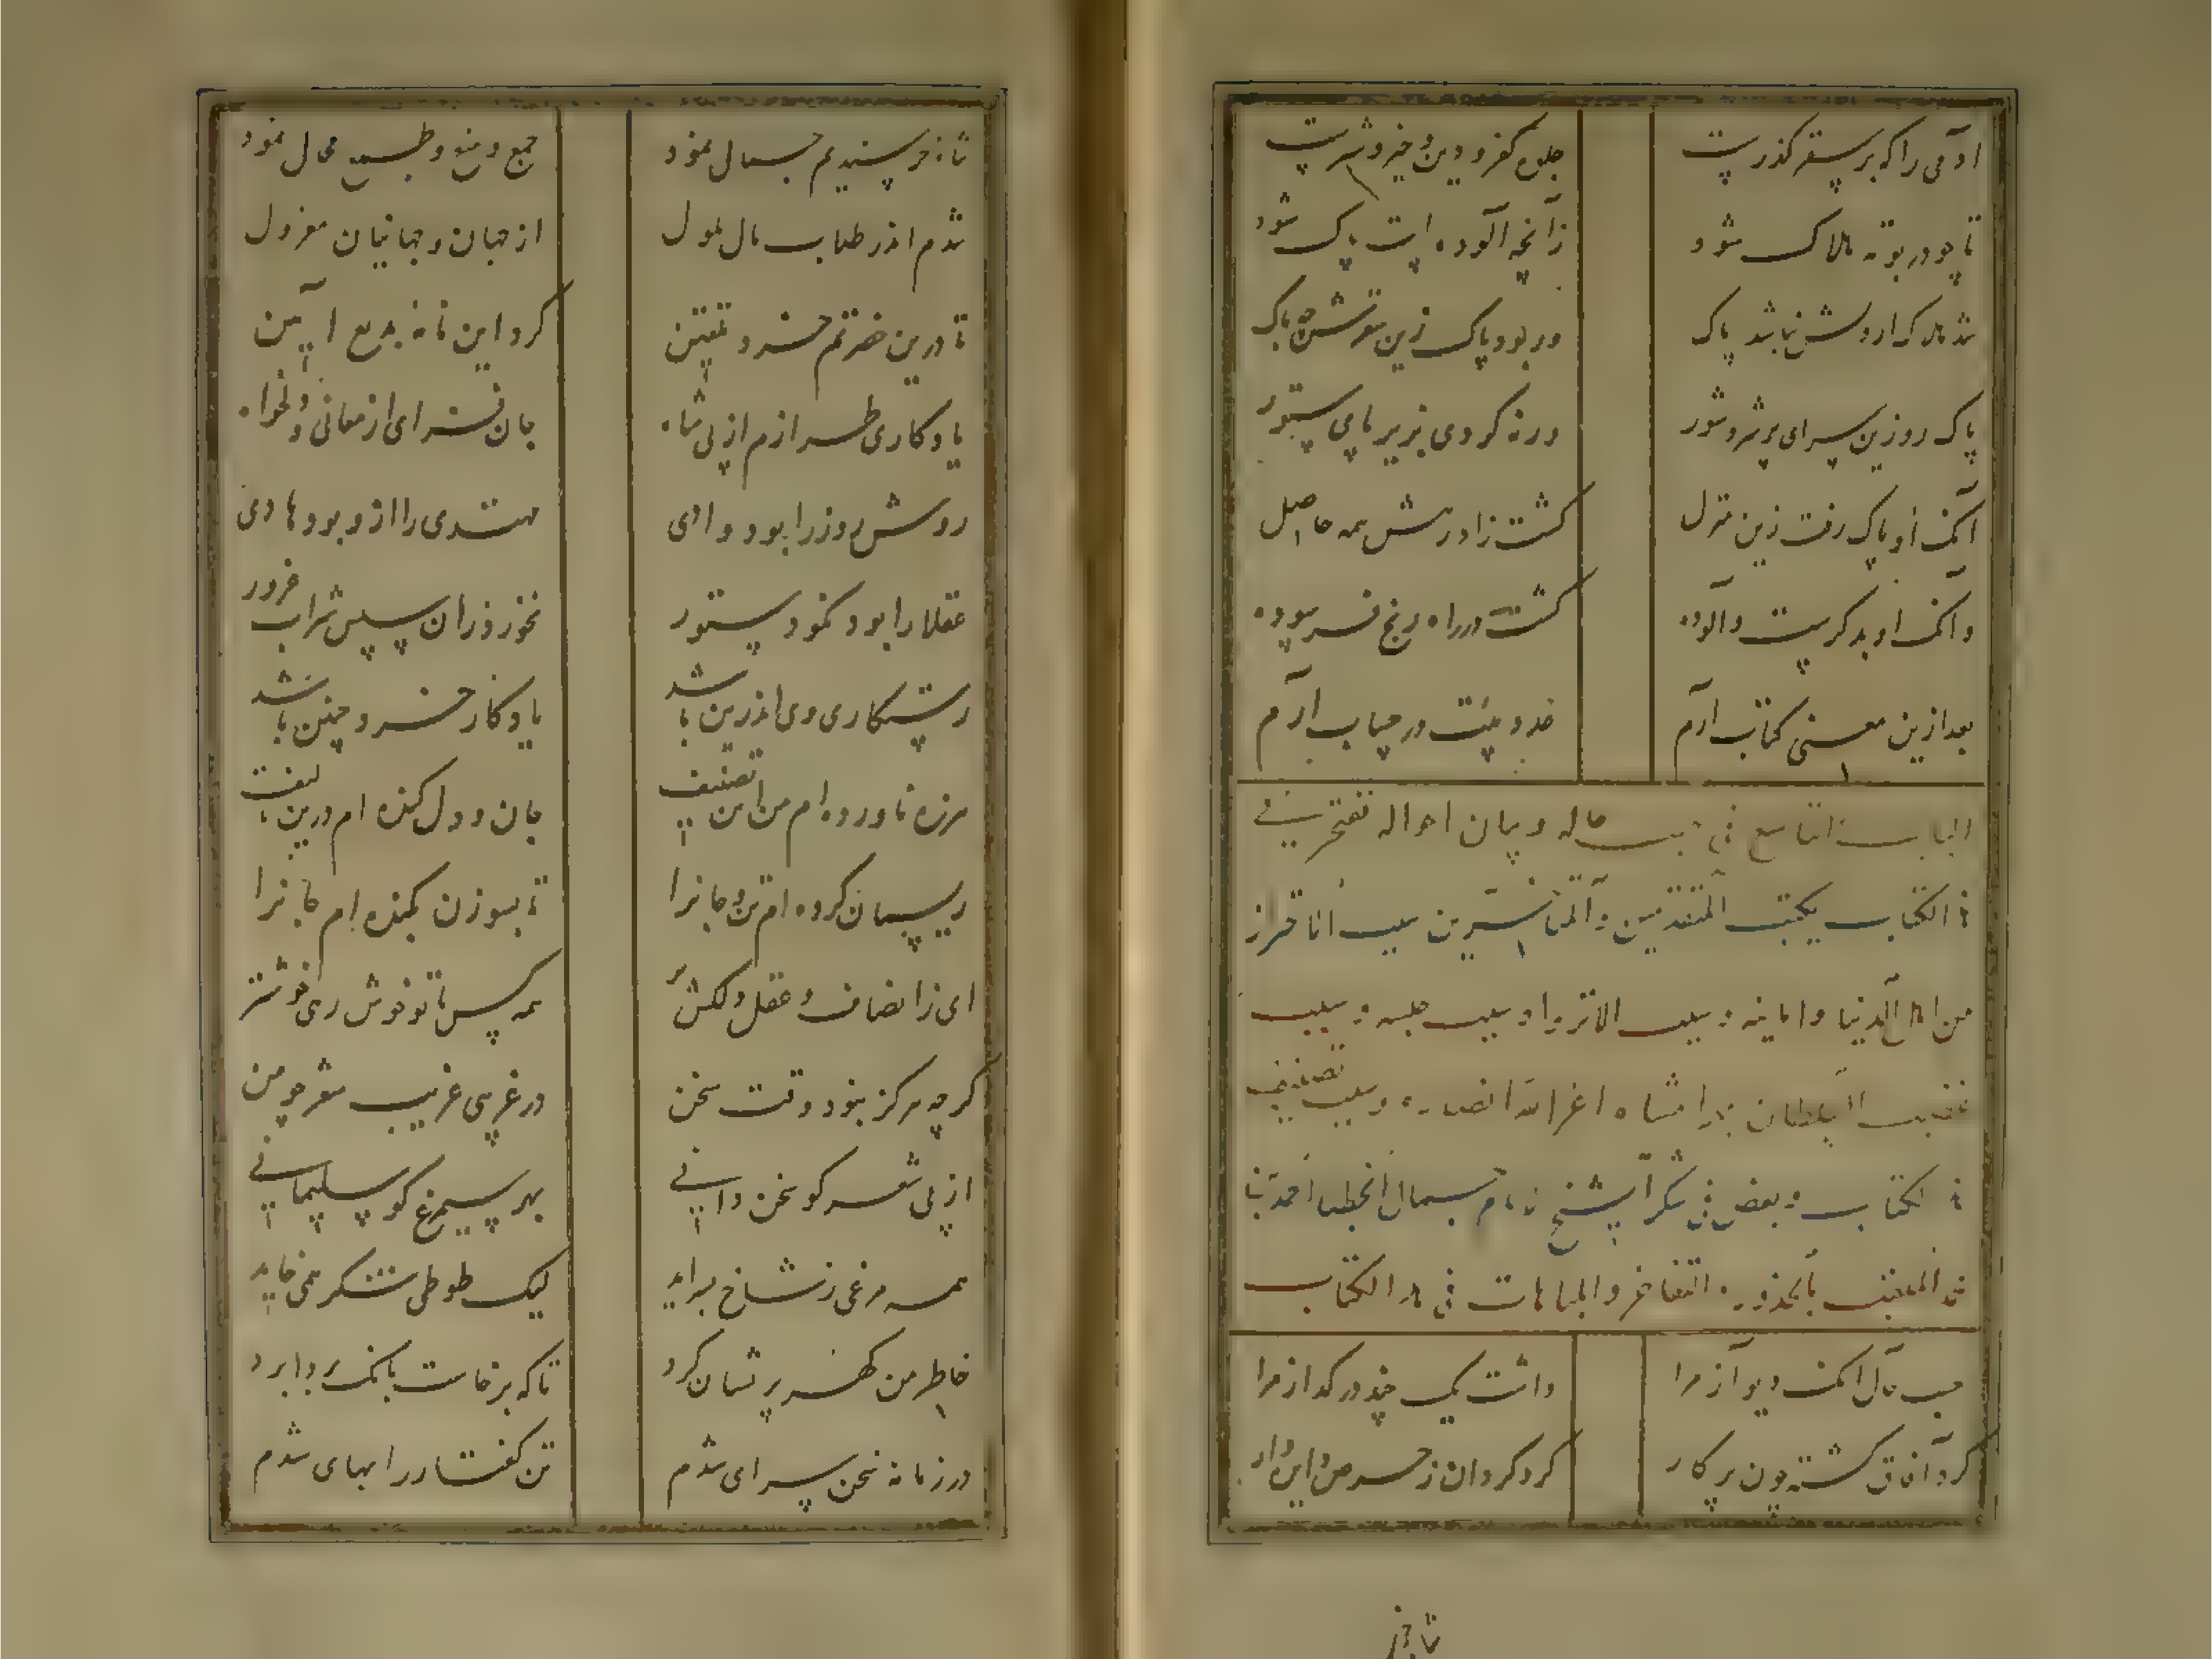 آدمی را که بر سقر گذرست جلوه کفر و دین و خیر و شرست
تا چو در بوته هلاک شود زانچه آلوده است پاک شود
شد هلاک ار روش نباشد پاک ور بود پاک زین سقرش چه باک
پاک رو زین سرای پر شر و شور ورنه گردی بزیر پای ستور
آنک او پاک رفت زین منزل گشت زاد رهش همه حاصل
وآنک او بدگرست و آلوده گشت در راه رنج فرسوده
بعد ازین معنی کتاب آرم خدویت در حساب آرم
الباب التاسع فی حسب حاله و بیان احواله تفتخر فی
هذا الکتاب بکتب المتقدمین والمتأخرین سبب انا قتراز
من اهل الدنیا واهالیه وسبب الانزوا وسبب حلیه وسبب
السلطان بهرامشاه اعز الله انصاره وسبب تصنیف
هذا الکتاب وبعض فی شکر الشیخ الامام جمال الخطبا احمد بن
محمد الملقب بالحذور والتفاخر والمباهات فی هذا الکتاب
حسب حال آنک دیو آز مرا داشت یک چند در گداز مرا
گرد آفاق گشته چون پرکار گرد گردان ز حرص دایره‌وار
شاه خرسندیم جمال نمود جمع و منع و طمع محال نمود
شدم اندر طلاب مال ملول از جهان و جهانیان معزول
تا درین حضرتم خرد تلقین کرد این نامه بدیع آیین
یادگاری طرازم از پی شاه جان فزای از معانی دلخواه
روش روز را بود وادی مهتدی را ازو بود هادی
عقلا را بود نکو دستور نخورد زان سپس شراب غرور
رستگاری وی اندرین باشد یادگار خرد چنین باشد
هرزه ناورده‌ام من این تصنیف جان و دل کنده‌ام درین تالیف
ریسمان کرده‌ام تن و جانرا تا بسوزن بکنده‌ام کانرا
ای ز انصاف و عقل دلکش‌تر همه کس با تو خوش رهی خوشتر
گرچه هرگز نبود وقت سخن در غریبی غریب شعر چو من
از پی شعر کو سخن دانی بهر سیمرغ کو سلیمانی
همه مرغی ز شاخ بسراید لیک طوطی شکر همی خاید
خاطر من کهر پریشان کرد تا که برخاست بانگ بردابرد
در زمانه سخن سرای شدم تن گفتار را بهای شدم
شاه خر